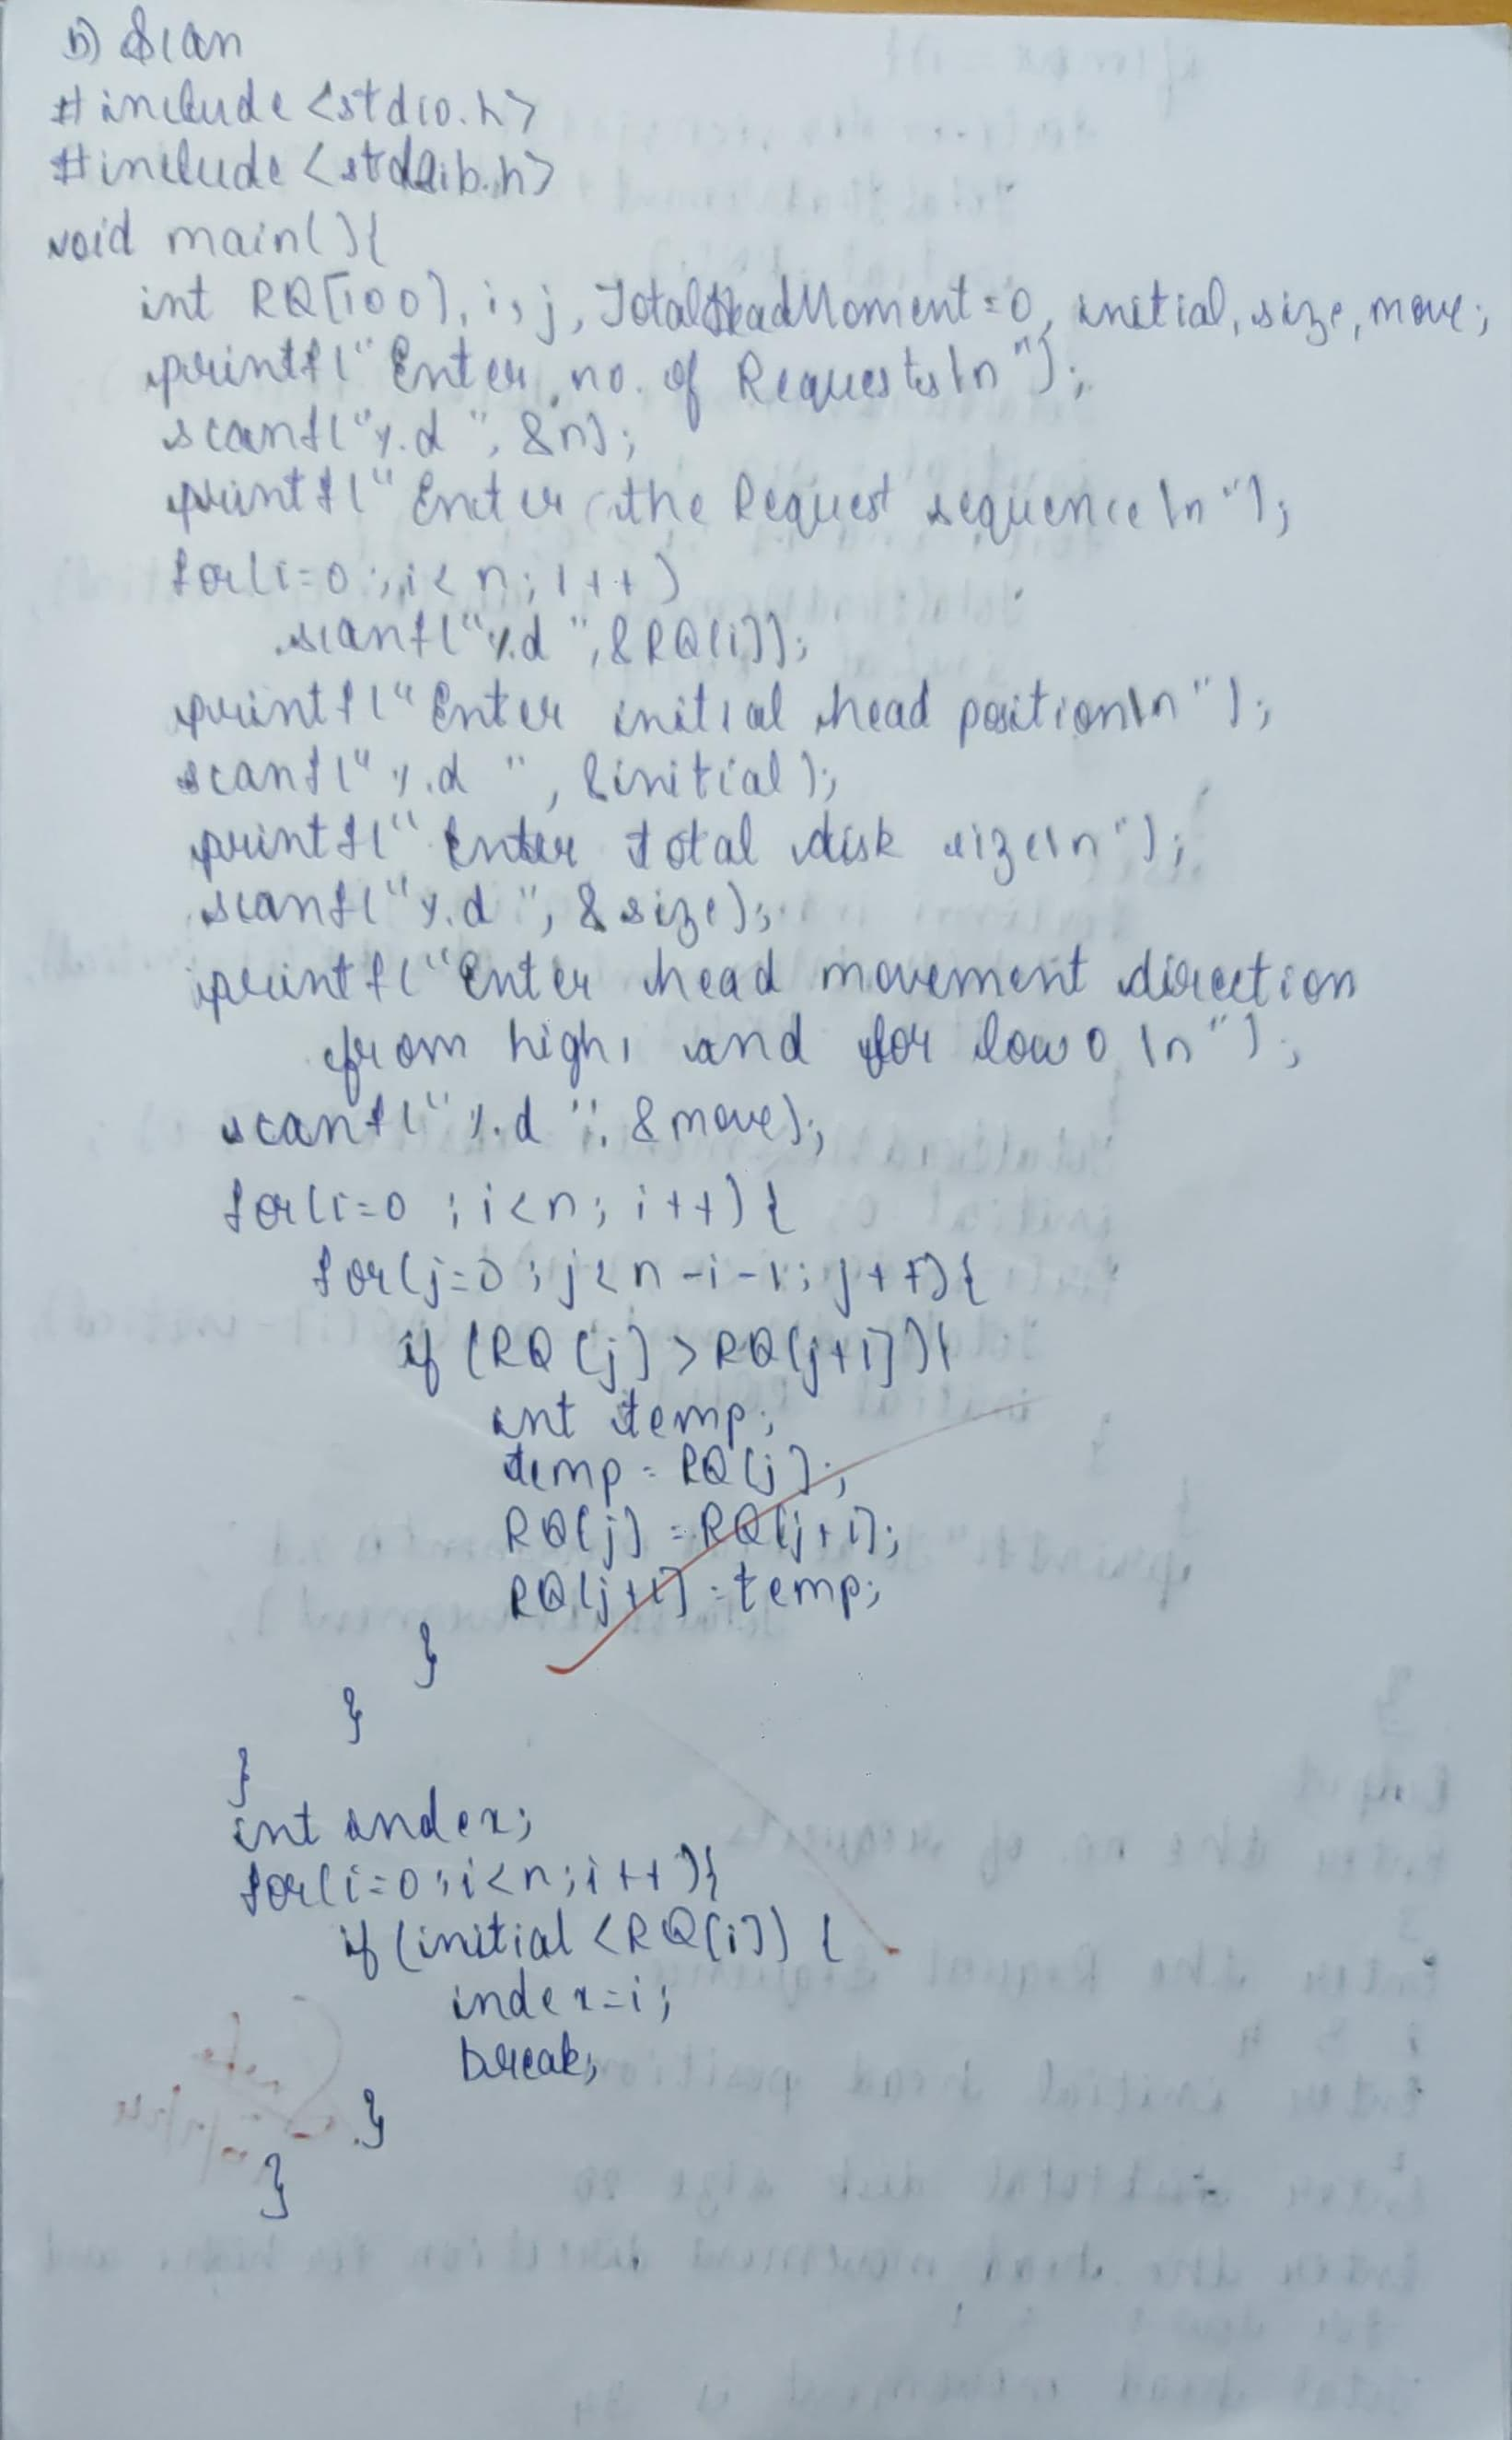 b) Scan
#include <stdio.h>
#include <stdlib.h>
void main(){
int RQ[100], i, j, TotalHeadMoment=0, initial, size, move;
printf("Enter no. of Requests\n");
scanf("%d", &n);
printf("Enter the Request sequence\n");
for(i=0; i<n; i++)
scanf("%d", &RQ[i]);
printf("Enter initial head position\n");
scanf("%d", &initial);
printf("Enter total disk size\n");
scanf("%d", &size);
printf("Enter head movement direction
from high 1 and for low 0 \n");
scanf("%d", &move);
for(i=0; i<n; i++){
for(j=0; j<n-i-1; j++){
if (RQ[j] > RQ[j+1]){
int temp;
temp = RQ[j];
RQ[j] = RQ[j+1];
RQ[j+1] = temp;
}
}
}
int index;
for(i=0; i<n; i++){
if (initial < RQ[i]) {
index=i;
break;
}
}